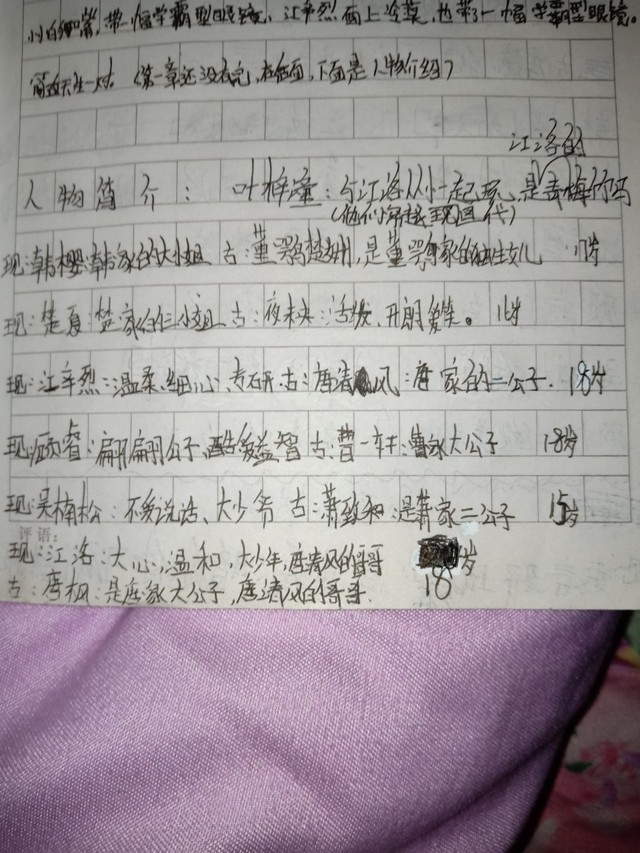 小白细嘴,带一幅学霸型眼镜,江辛烈面上冷莫,也带了一幅学霸型眼镜。
简直天生一对。(第一章还没有完,在后面,下面是人物介绍)
江洛的
人物简介:叶梓潼:与江洛从小一起玩,是青梅竹马
(他们穿越至现代)
现:韩樱:韩家的大小姐 古:董鄂楚,是董鄂家的女儿 17岁
现:楚夏:楚家的二小姐 古:夜未央:活发、开朗、爱笑。 16岁
现:江辛烈:温柔、细心、专研 古:唐清风:唐家的二公子. 18岁
现:顾睿:翩翩公子,酷爱益智 古:曹一轩:曹家大公子 18岁
现:吴楠松:不爱说话、大少爷 古:萧致和:是萧家二公子 15岁
评语:
现:江洛:大心,温和,大少年,唐清风的哥哥 岁
古:唐枫:是唐家大公子,唐清风的哥哥. 18